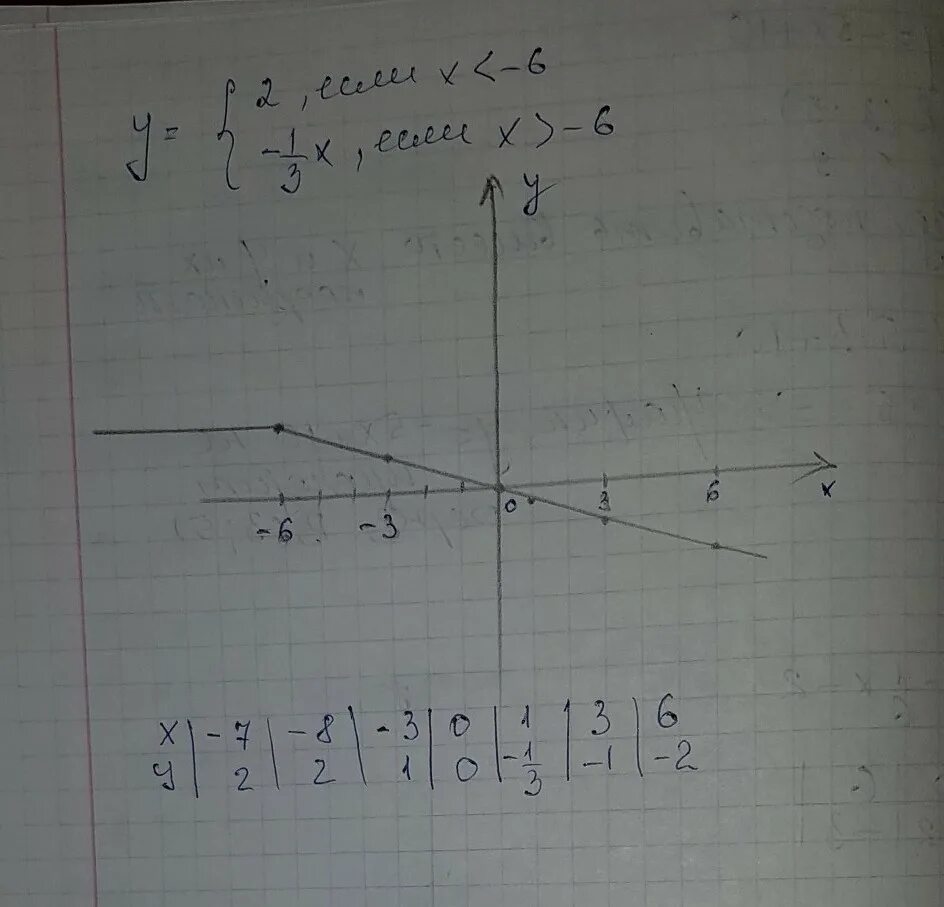 y = { 2, если x < -6
-1/3 x, если x > -6
y
-6 -3 0 3 6 x
x | -7 | -8 | -3 | 0 | 1 | 3 | 6
y | 2 | 2 | 1 | 0 | -1/3 | -1 | -2